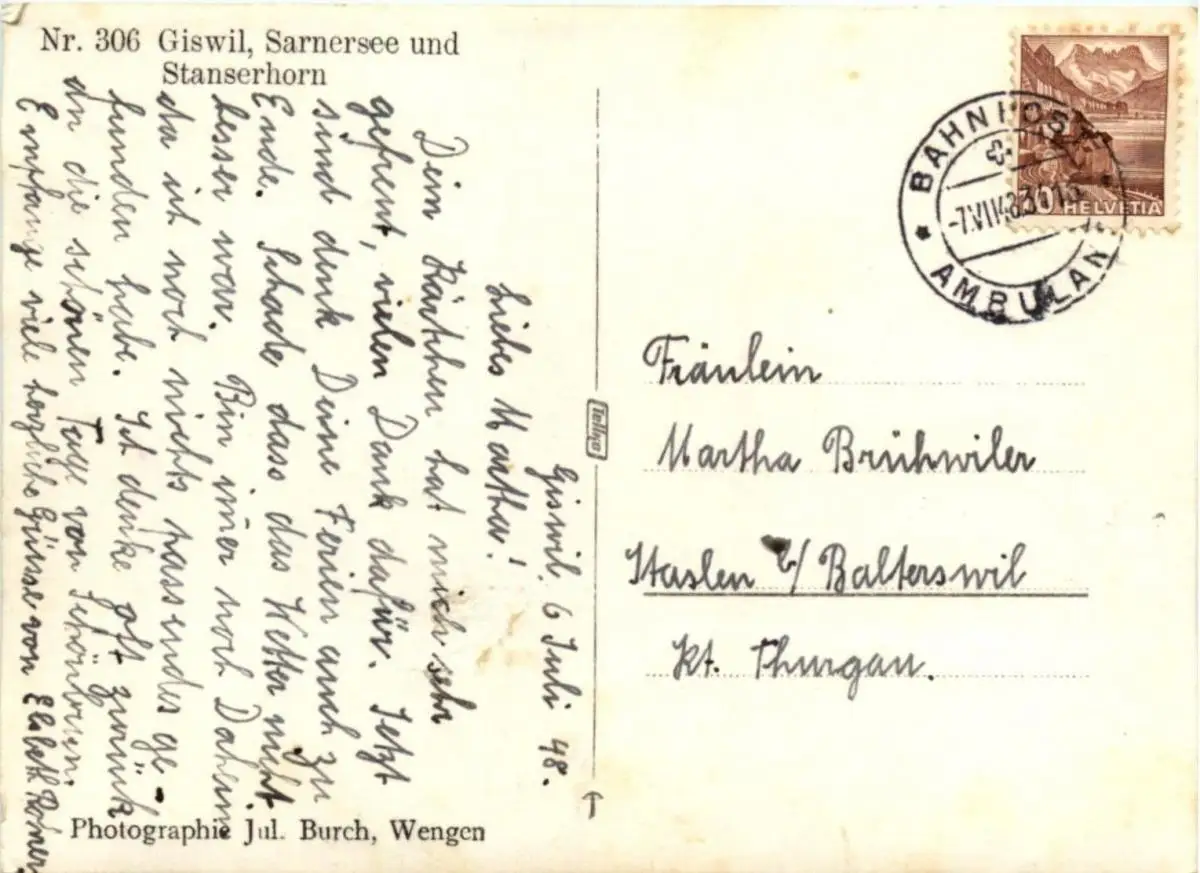 Nr. 306 Giswil, Sarnersee und
Stanserhorn
Giswil. 6 Juli 48.
Liebes Martheli!
Dein Kärtchen hat mich sehr
gefreut, vielen Dank dafür. Jetzt
sind denk Deine Ferien auch zu
Ende. Schade dass das Wetter nicht
besser war. Bin imer noch Daheim
da ich noch nichts passendes ge-
funden habe. Ich denke oft zurück
an die schönen Tage von Schönbrunn.
Empfange viele herzliche Grüsse von Elsbeth Romer
Photographie Jul. Burch, Wengen
Tellko
BAHNPOST
-7.VII48
AMBULAN
30 HELVETIA
Fräulein
Martha Brühwiler
Itaslen b/ Balterswil
Kt. Thurgau.